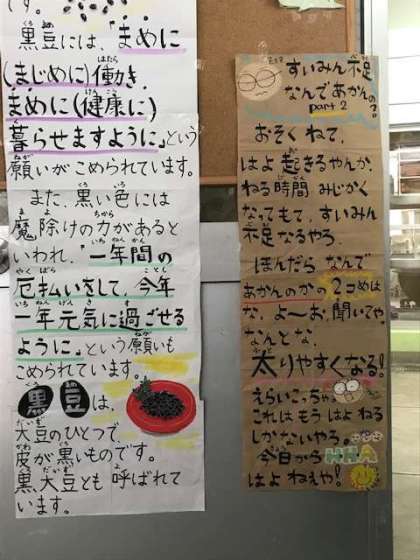 です。
黒豆には、「まめに
(まじめに)働き、
まめに(健康に)
暮らせますように」という
願いがこめられています。
また、黒い色には
魔除けの力があると
いわれ、"一年間の
厄払いをして、今年
一年元気に過ごせる
ように"という願いも
こめられています。
黒豆は、
大豆のひとつで、
皮が黒いものです。
黒大豆とも呼ばれて
います。
すいみん不足
なんであかんの?
part 2
おそくねて、
はよ起きるやんか。
ねる時間みじかく
なってもて、すいみん
不足なるやろ。
ほんだらなんで
あかんのかの2コめは
な、よーお、聞いてや
なんとな、
太りやすくなる!
えらいこっちゃ
これはもうはよねる
しかないやろ。
今日から
はよねえや!